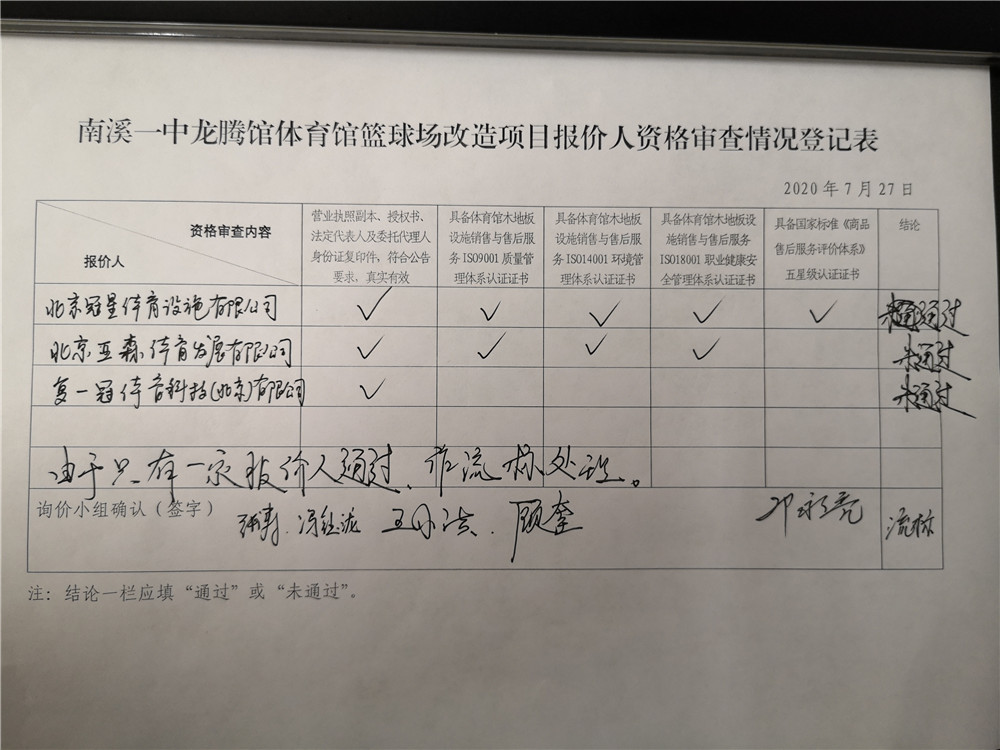 南溪一中龙腾馆体育馆篮球场改造项目报价人资格审查情况登记表
2020年7月27日
资格审查内容
报价人
营业执照副本、授权书、
法定代表人及委托代理人
身份证复印件，符合公告
要求，真实有效
具备体育馆木地板
设施销售与售后服
务ISO9001质量管
理体系认证证书
具备体育馆木地板
设施销售与售后服
务ISO14001环境管
理体系认证证书
具备体育馆木地板设
施销售与售后服务
ISO18001职业健康安
全管理体系认证证书
具备国家标准《商品
售后服务评价体系》
五星级认证证书
结论
北京冠星体育设施有限公司 ✓ ✓ ✓ ✓ ✓ 通过
北京亚森体育发展有限公司 ✓ ✓ ✓ ✓ 未通过
复一冠体育科技(北京)有限公司 ✓ 未通过
由于只有一家报价人通过、作流标处理。
询价小组确认（签字）
顾奎
流标
注：结论一栏应填“通过”或“未通过”。